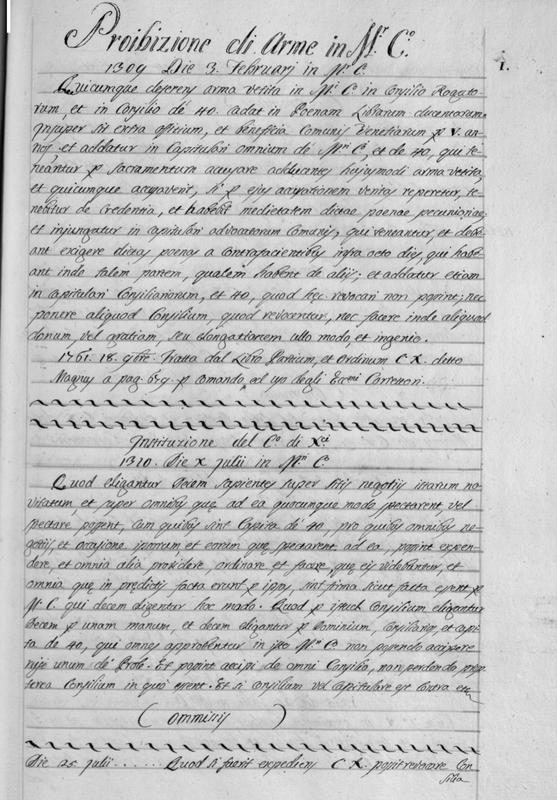 Proibizione di Arme in M.r C.o
1.
1309 Die 3. Februarj in M.r C.
Quicumque deferens arma vetita in M.r C. in Consilio Rogato-
rum, et in Consilio de 40. cadat in Poenam Librarum ducentarum.
Insuper sit extra officium, et beneficia Comunis Venetiarum p V. an-
nos et addatur in Capitulari omnium de M.ri C.i, et de 40, qui te-
neantur p sacramentum accusare adducentes hujusmodi arma vetita,
et quicumque accusaverit, si p ejus accusationem veritas reperietur, te-
nebitur de Credentia, et habebit medietatem dictae poenae pecuniariae,
et injungatur in capitulari advocatorum Comunis, qui teneantur, et debe-
ant exigere dictas poenas a contrafacientibus infra octo dies, qui habe-
ant inde talem partem, qualem habent de aliis; et addatur etiam
in capitulari Consiliariorum, et 40, quod hec revocari non possint; nec
ponere aliquod Consilium, quod revocentur, nec facere inde aliquod
donum, vel gratiam, seu elongationem ullo modo, et ingenio.
1761. 18. 9bre. Tratta dal Libro Partium, et Ordinum C X. detto
Magnus a pag. 659 p comando, ed uso degli Ecc.mi Corretori.
Instituzione del C.o di X.ci
1310. Die X julii in M.ri C.
Quod eligantur Decem sapientes super istis negotijs istarum no-
vitatum, et super omnibus quę ad ea quocunque modo spectarent, vel
spectare possent, cum quibus sint Capita de 40, pro quibus omnibus ne-
gotijs, et occasione ipsorum et eorum quę spectarent ad ea, possint expen-
dere, et omnia alia providere, ordinare et facere, quę eis videbuntur, et
omnia quę in predictis facta erunt p ipsos, sint firma sicut facta essent p
M. C. qui decem eligentur hoc modo. Quod p istud Consilium eligantur
Decem p unam manum, et decem eligantur p Dominium, Consiliarios, et capi-
ta de 40, qui omnes approbentur in isto M.ri C. non possendo accipere
nisi unum de Prole. Et possint accipi de omni Consilio, non perdendo prop-
terea Consilium in quo essent. Et si Consilium vel Capitulare est contra etc.
( ommissis )
Die 25 julii ...... Quod si fuerit expediens C X. possit revocare Con-
silia